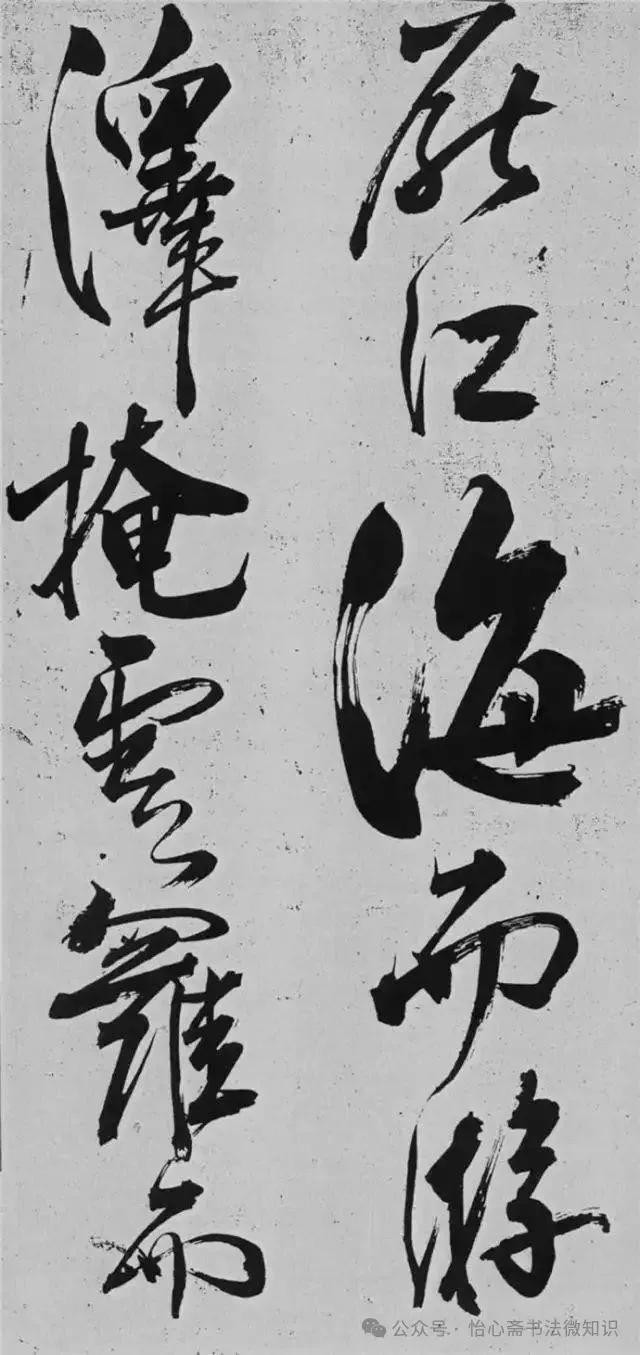 厭江海而游
澤掩雲羅而
公众号·怡心斋书法微知识